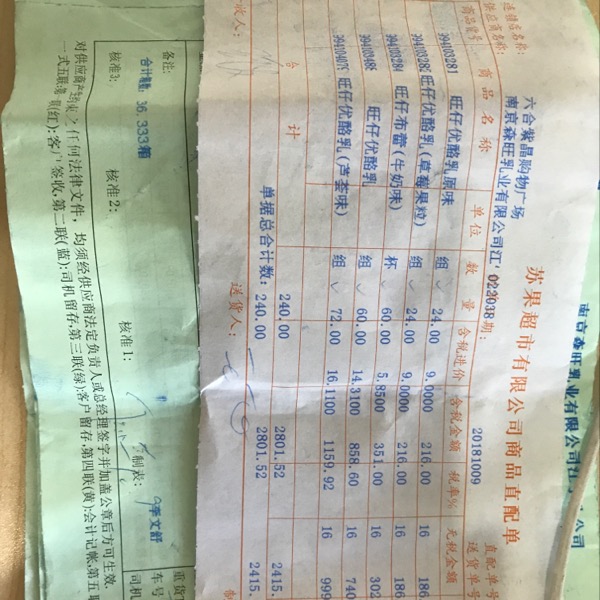 苏果超市有限公司商品直配单
连锁店名称: 六合紫晶购物广场
供应商名称: 南京森旺乳业有限公司江 023038 期: 20181009 直配单号
商品宝号 商品名称 单位 数量 含税进价 含税金额 税率% 无税金额 送货单号
99403281 旺仔优酪乳原味 组 24.00 9.0000 216.00 16 186
旺仔优酪乳(草莓果粒) 组 24.00 9.0000 216.00 16 186
旺仔布蕾(牛奶味) 杯 60.00 5.8500 351.00 16 302
旺仔优酪乳 组 60.00 14.3100 858.60 16 740
旺仔优酪乳(芦荟味) 组 72.00 16.1100 1159.92 16 999
合计 240.00 2801.52 2415.
单据总合计数: 240.00 2801.52 2415.
收人: 送货人:
南京森旺乳业有限公司江
公司
备注: 合计整数: 36.333箱
核准3: 核准2: 核准1: 制表: 李文舒
车号
司机
对供应商产生约束之任何法律文件，均须经供应商法定负责人或总经理签字并加盖公章后方可生效.
一式五联:第一联(红):客户签收,第二联(蓝):司机留存,第三联(绿)客户留存,第四联(黄):会计记帐,第五联